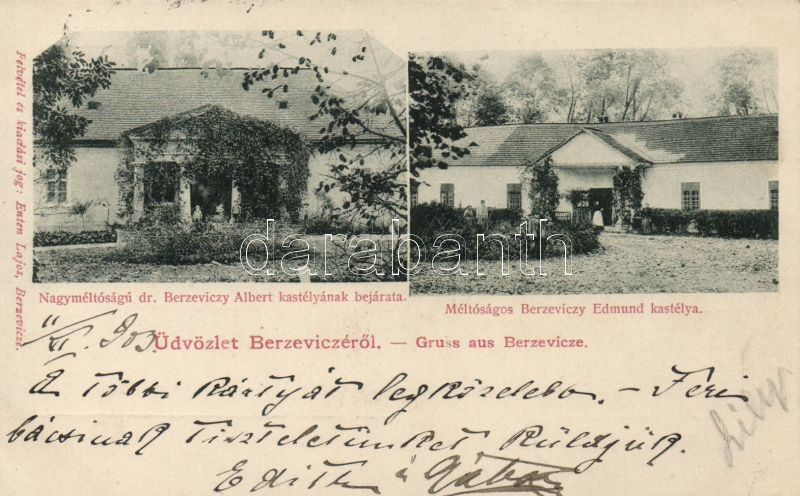 Felvétel és kiadási jog: Enten Lajos, Berzevicze.
darabanth
Nagyméltóságú dr. Berzeviczy Albert kastélyának bejárata.
Méltóságos Berzeviczy Edmund kastélya.
Üdvözlet Berzeviczéről. — Gruss aus Berzevicze.
A többi kártyát legközelebb. – Feri
bácsinak tiszteletünket küldjük.
Edith és Gábor